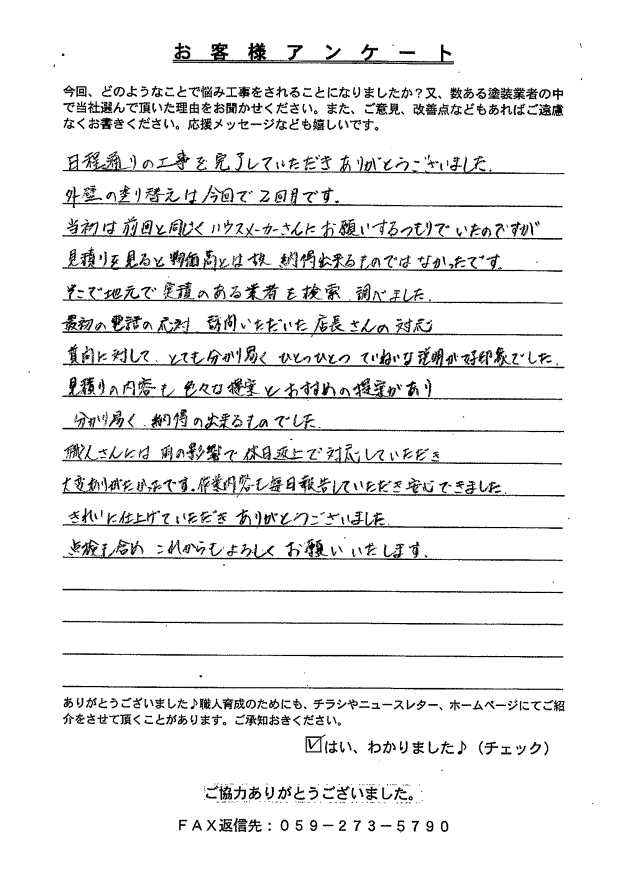 お客様アンケート
今回、どのようなことで悩み工事をされることになりましたか？又、数ある塗装業者の中
で当社選んで頂いた理由をお聞かせください。また、ご意見、改善点などもあればご遠慮
なくお書きください。応援メッセージなども嬉しいです。
日程通りの工事を完了していただきありがとうございました。
外壁の塗り替えは今回で2回目です。
当初は前回と同じくハウスメーカーさんにお願いするつもりでいたのですが
見積りを見ると物価高とは故 納得出来るものではなかったです。
そこで地元で実積のある業者を検索 調べました。
最初の電話の応対 訪問いただいた店長さんの対応
質問に対して、とても分かり易く ひとつひとつ ていねいな説明が好印象でした。
見積りの内容も色々な提案とおすすめの提案があり
分かり易く 納得の出来るものでした。
職人さんには雨の影響で休日返上で対応していただき
大変ありがたかったです。作業内容も毎日報告していただき安心できました。
きれいに仕上げていただきありがとうございました。
点検も含め これからもよろしくお願いいたします。
ありがとうございました♪職人育成のためにも、チラシやニュースレター、ホームページにてご紹
介をさせて頂くことがあります。ご承知おきください。
☑はい、わかりました♪（チェック）
ご協力ありがとうございました。
FAX返信先：059－273－5790